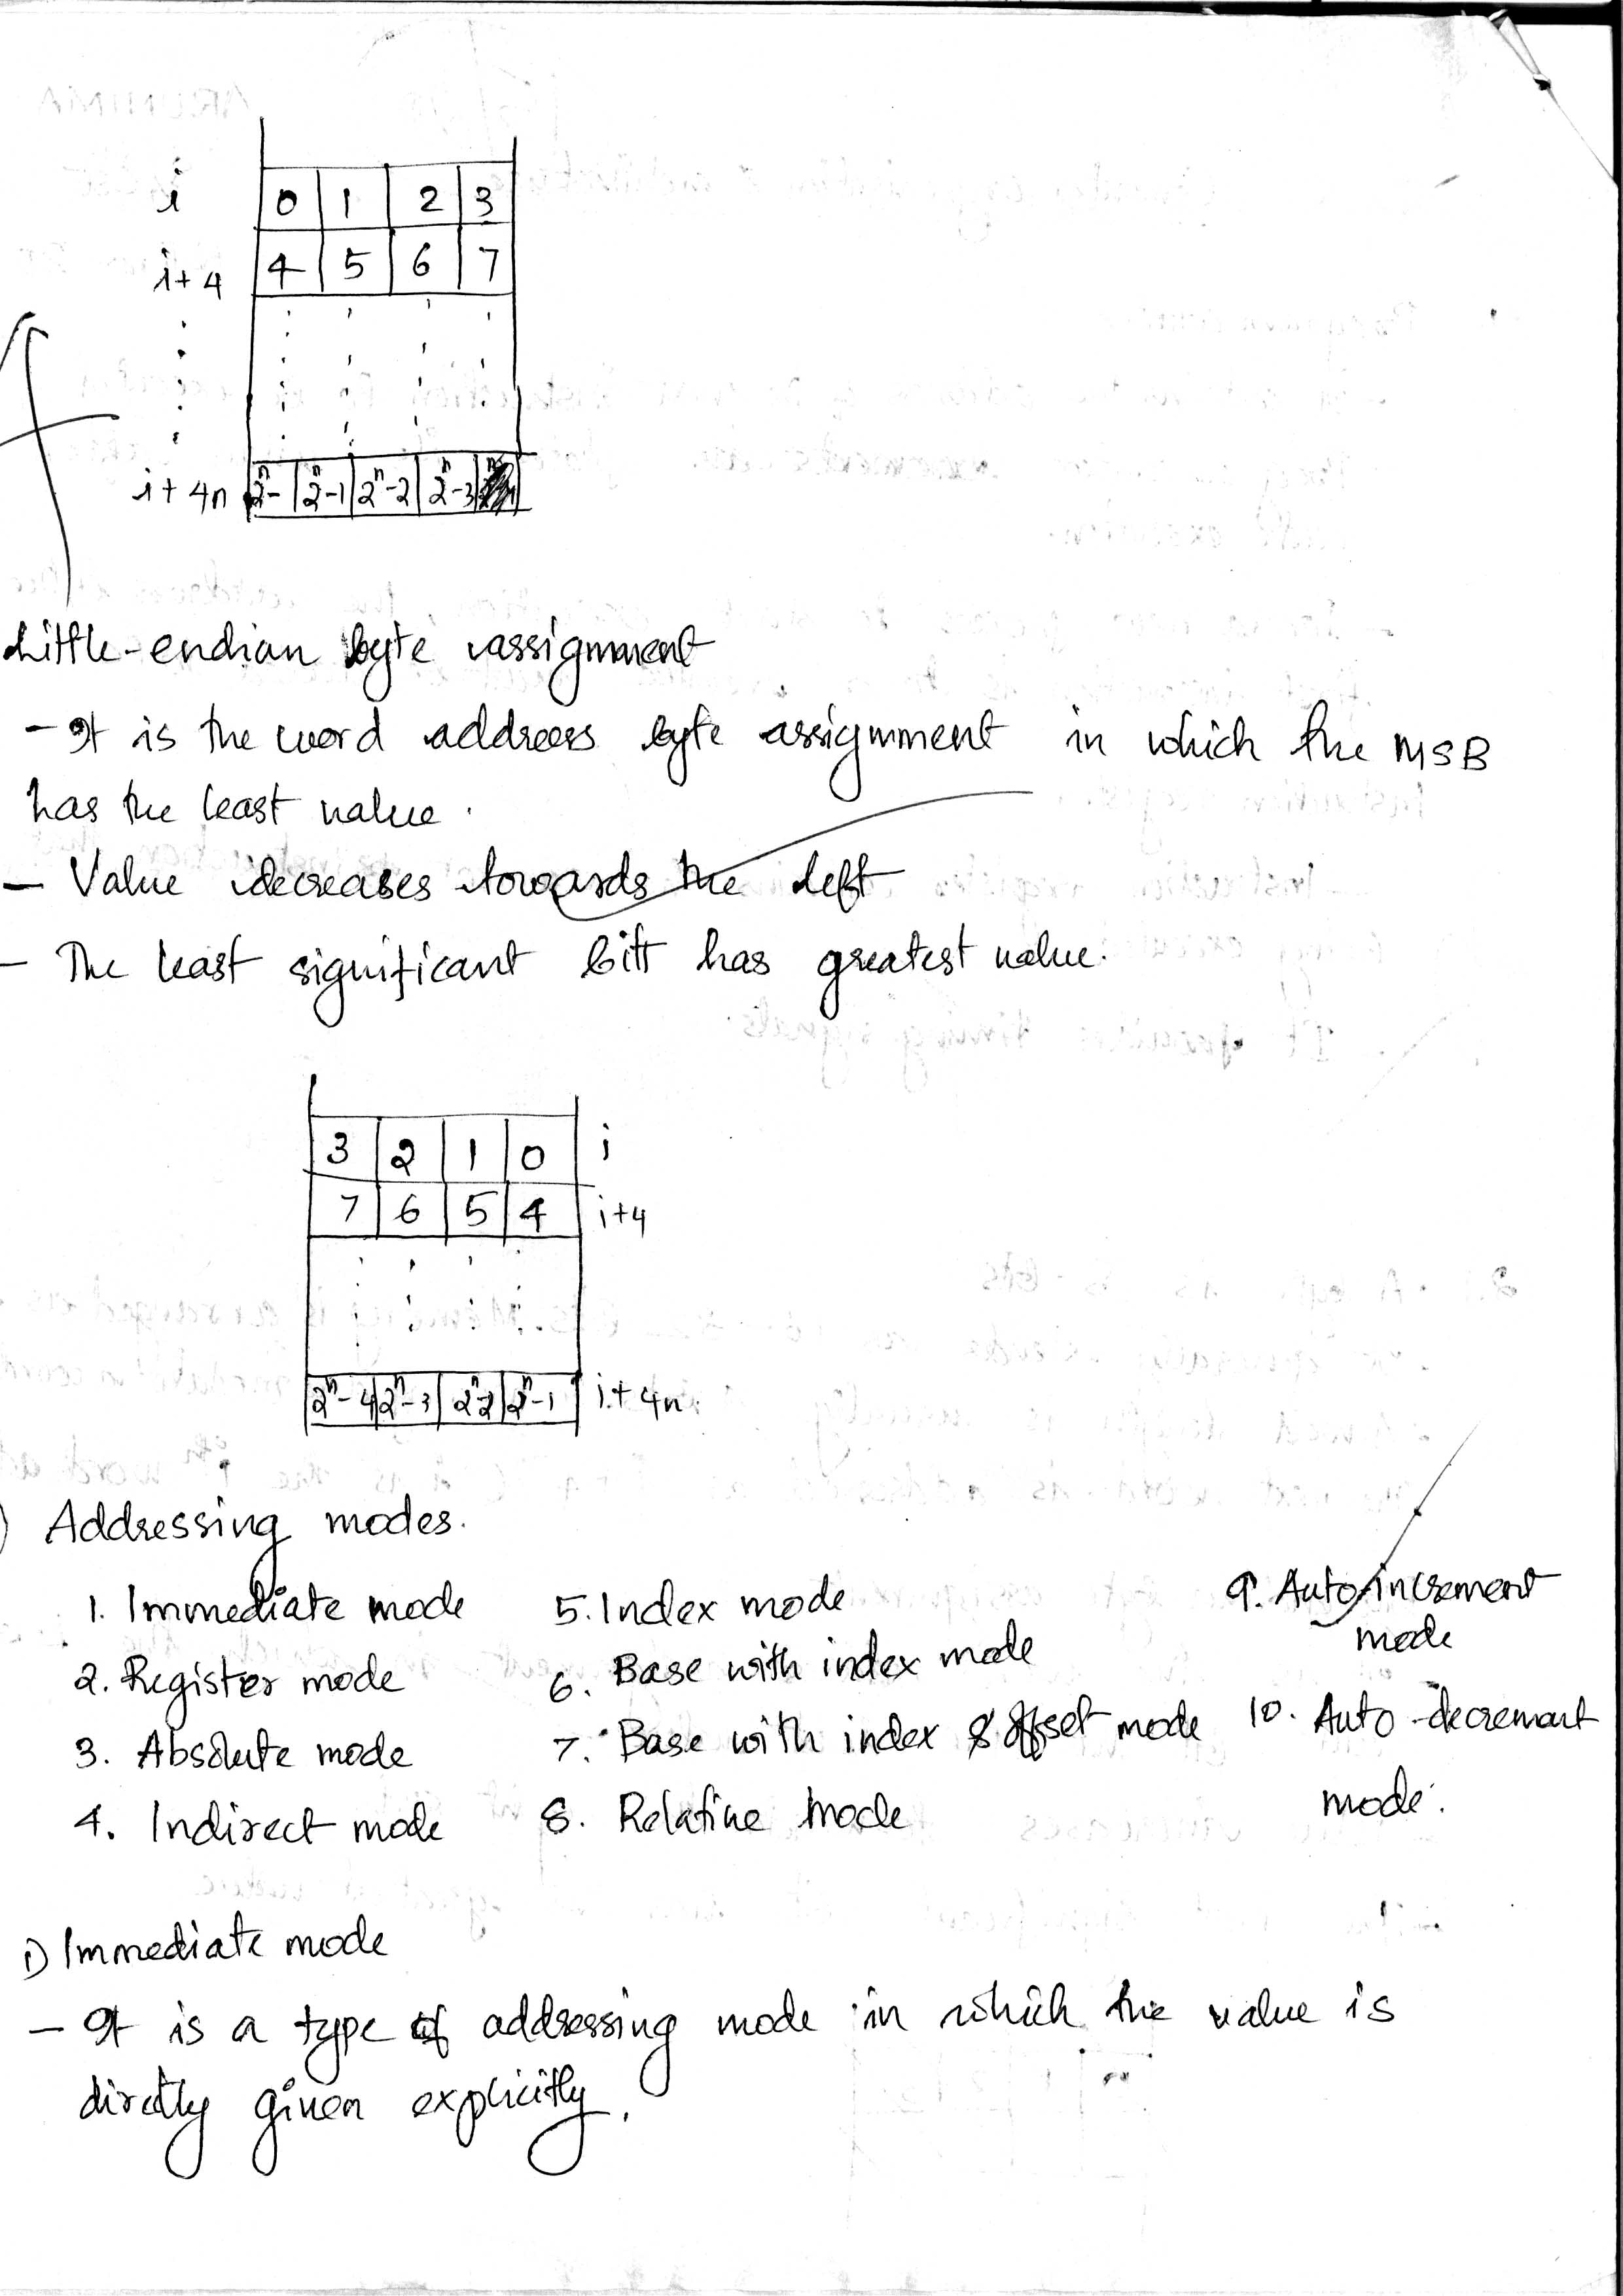 i 0 1 2 3
i+4 4 5 6 7
i+4n 2ⁿ- 2ⁿ-1 2ⁿ-2 2ⁿ-3
Little-endian byte assignment
- It is the word address byte assignment in which the MSB
has the least value.
- Value decreases towards the left
- The least significant bitt has greatest value.
3 2 1 0 i
7 6 5 4 i+4
2ⁿ-4 2ⁿ-3 2ⁿ-2 2ⁿ-1 i+4n
) Addressing modes.
1. Immediate mode 5. Index mode 9. Auto increment
mode
2. Register mode 6. Base with index mode
3. Absolute mode 7. Base with index & offset mode 10. Auto-decrement
4. Indirect mode 8. Relative mode mode.
i) Immediate mode
- It is a type of addressing mode in which the value is
directly given explicitly.